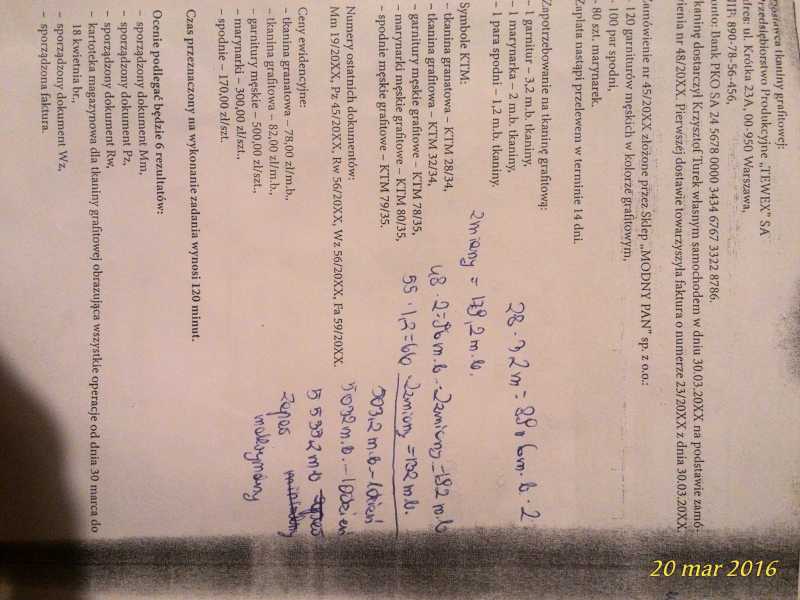 Dostawca tkaniny grafitowej:
Przedsiębiorstwo Produkcyjne „TEWEX” SA
adres: ul. Krótka 23A, 00-950 Warszawa,
NIP: 890-78-56-456,
konto: Bank PKO SA 24 5678 0000 3434 6767 3322 8786.
Tkaninę dostarczył Krzysztof Turek własnym samochodem w dniu 30.03.20XX na podstawie zamó-
wienia nr 48/20XX. Pierwszej dostawie towarzyszyła faktura o numerze 23/20XX z dnia 30.03.20XX.
Zamówienie nr 45/20XX złożone przez Sklep „MODNY PAN” sp. z o.o.:
- 120 garniturów męskich w kolorze grafitowym,
- 100 par spodni,
- 80 szt. marynarek.
Zapłata nastąpi przelewem w terminie 14 dni.
Zapotrzebowanie na tkaninę grafitową:
– 1 garnitur – 3,2 m.b. tkaniny,
– 1 marynarka – 2 m.b. tkaniny,
– 1 para spodni – 1,2 m.b. tkaniny.
Symbole KTM:
– tkanina granatowa – KTM 28/34,
– tkanina grafitowa – KTM 32/34,
– garnitury męskie grafitowe – KTM 78/35,
– marynarki męskie grafitowe – KTM 80/35,
– spodnie męskie grafitowe – KTM 79/35.
Numery ostatnich dokumentów:
Mm 19/20XX, Pz 45/20XX, Rw 56/20XX, Wz 56/20XX, Fa 59/20XX.
Ceny ewidencyjne:
– tkanina granatowa – 78,00 zł/m.b.,
– tkanina grafitowa – 82,00 zł/m.b.,
– garnitury męskie – 500,00 zł/szt.,
– marynarki – 300,00 zł/szt.,
– spodnie – 170,00 zł/szt.
Czas przeznaczony na wykonanie zadania wynosi 120 minut.
Ocenie podlegać będzie 6 rezultatów:
– sporządzony dokument Mm,
– sporządzony dokument Pz,
– sporządzony dokument Rw,
– kartoteka magazynowa dla tkaniny grafitowej obrazująca wszystkie operacje od dnia 30 marca do
18 kwietnia br.,
– sporządzony dokument Wz,
– sporządzona faktura.
28 · 3,2 m = 89,6 m.b · 2
zmiany = 179,2 m.b.
48 · 2 = 96 m.b · 2 zmiany = 192 m.b
55 · 1,2 = 66 · 2 zmiany = 132 m.b.
503,2 m.b – 1 dzień
5032 m.b. – 10 dzień
5 539,2 m.b
zapas
maksymalny
20 mar 2016